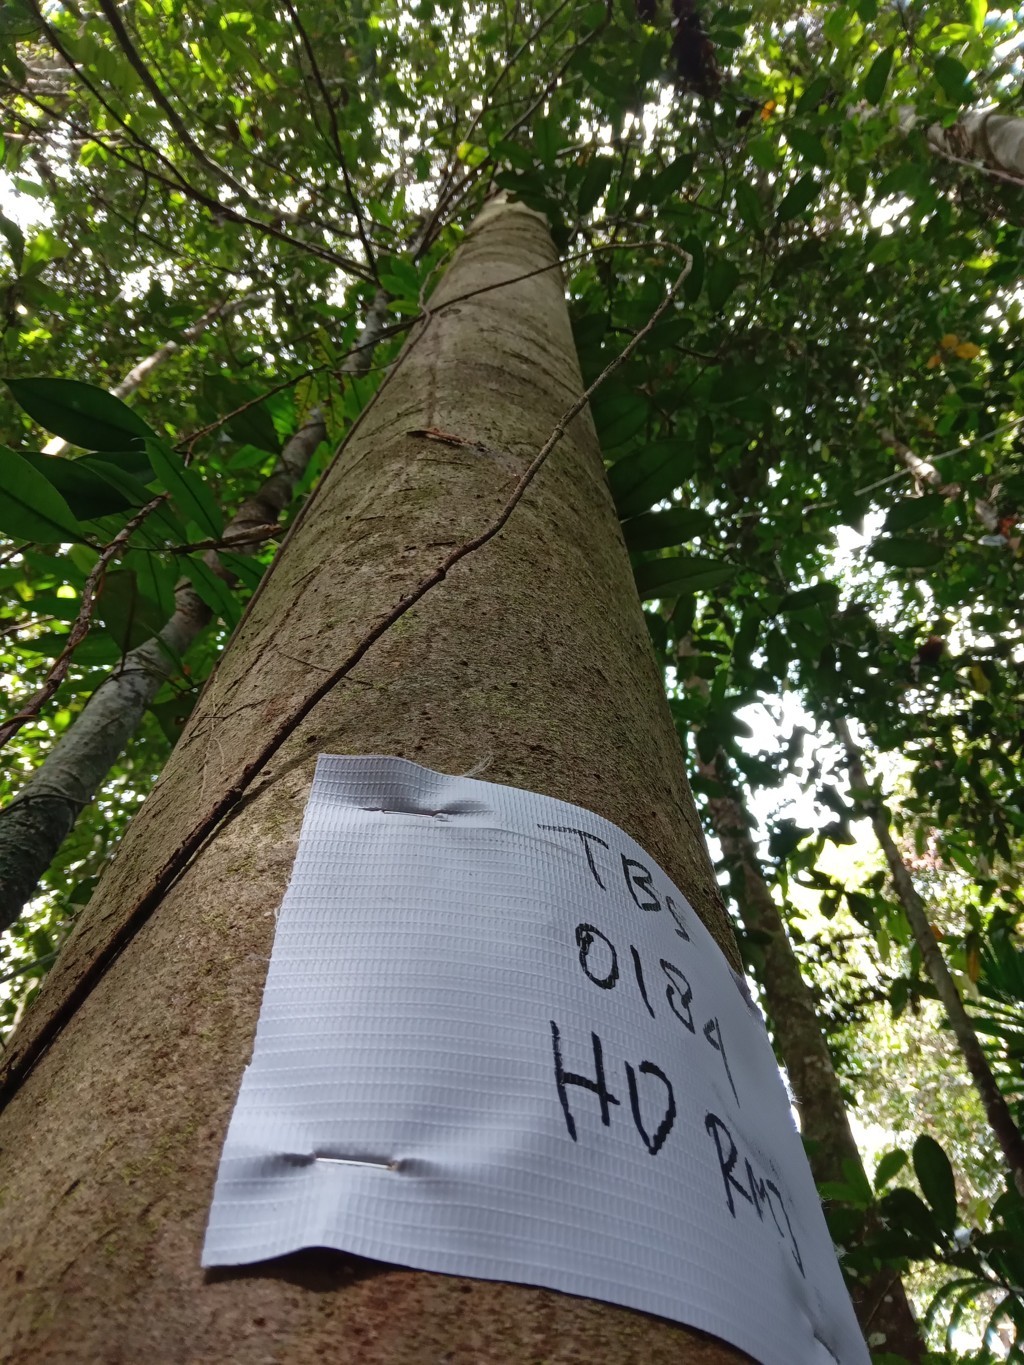 TBS
0184
HD RMJ